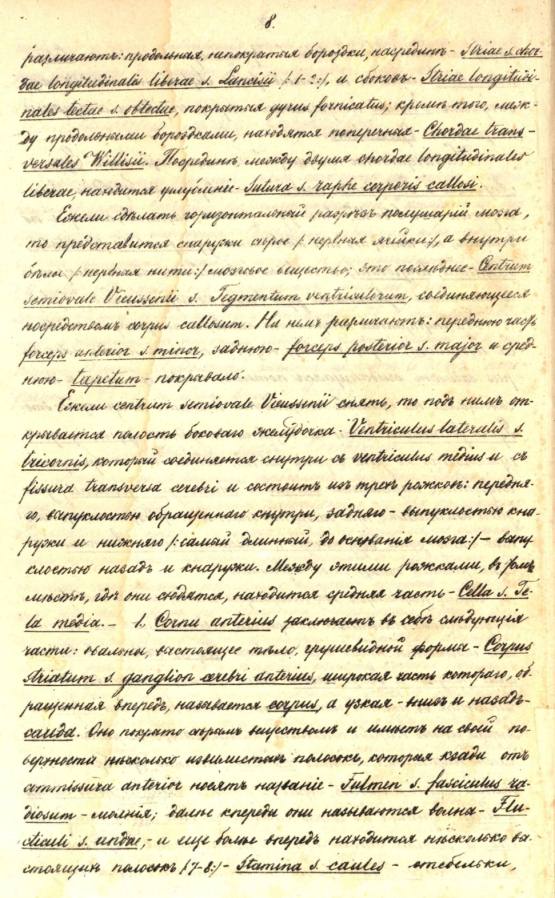 8.
различаютъ: продольныя, непокрытыя бороздки, посрединѣ - Striae s. chor-
dae longitudinalis liberae s. Lancisii /:1-2:/, и сбоковъ - Striae longitudi-
nales tectae s. obtectae, покрытыя gyrus fornicatus; кромѣ того, меж-
ду продольными бороздками, находятся поперечныя - Chordae trans-
versales Willisii. Посрединѣ, между двумя chordae longitudinales
liberae, находится углубленіе - Sutura s. raphe corporis callosi.
Ежели сдѣлать горизонтальный разрѣзъ полушарій мозга,
то представится снаружи сѣрое /:нервныя ячейки:/, а внутри
бѣлое /:нервныя нити:/ мозговое вещество; это послѣднее - Centrum
semiovale Vieussenii s. Tegmentum ventriculorum, соединяющееся
посредствомъ corpus callosum. На немъ различаютъ: переднюю часть
forceps anterior s. minor, заднюю - forceps posterior s. major и сред-
нюю - tapetum - покрывало.
Ежели centrum semiovale Vieussenii снять, то подъ нимъ от-
крывается полость боковаго желудочка - Ventriculus lateralis s.
tricornis, который соединяется снутри съ ventriculus medius и съ
fissura transversa cerebri и состоитъ изъ трехъ рожковъ: передня-
го, выпуклостью обращеннаго кнутри, задняго - выпуклостью кна-
ружи и нижняго /:самый длинный, до основанія мозга:/ - выпу
клостью назадъ и кнаружи. Между этими рожками, въ томъ
мѣстѣ, гдѣ они сходятся, находится средняя часть - Cella s. Te-
la media. - 1, Cornu anterius заключаетъ въ себѣ слѣдующія
части: овальное, выстоящее тѣло, грушевидной формы - Corpus
striatum s. ganglion cerebri anterius, широкая часть котораго, об-
ращенная впередъ, называется corpus, а узкая - внизъ и назадъ -
cauda. Оно покрыто сѣрымъ веществомъ и имѣетъ на своей по-
верхности нѣсколько извилистыхъ полосокъ, которыя кзади отъ
commissura anterior носятъ названіе - Fulmen s. fasciculus ra-
diosum - молнія; далѣе кпереди они называются волна - Flu-
cticuli s. undae, - и еще болѣе впередъ находится нѣсколько вы-
стоящихъ полосокъ /:7-8:/ - Stamina s. caules - стебельки,